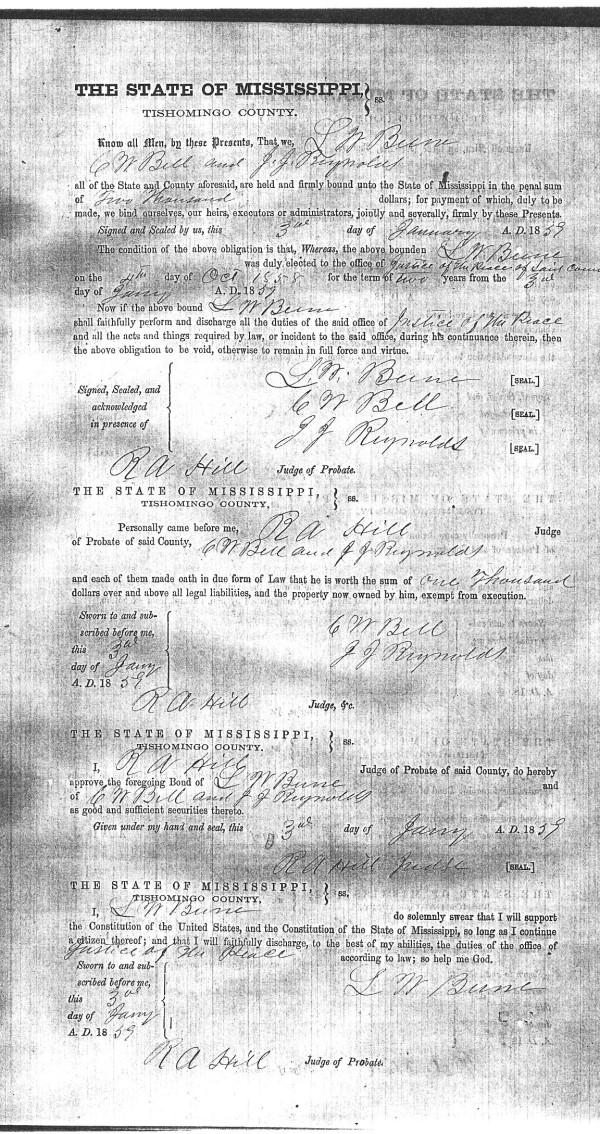 THE STATE OF MISSISSIPPI, } ss.
TISHOMINGO COUNTY.
Know all Men, by these Presents, That we, L W Beene
C W Bell and J. J. Reynolds
all of the State and County aforesaid, are held and firmly bound unto the State of Mississippi in the penal sum
of Two Thousand dollars; for payment of which, duly to be
made, we bind ourselves, our heirs, executors or administrators, jointly and severally, firmly by these Presents.
Signed and Sealed by us, this 3rd day of January A. D. 1859
The condition of the above obligation is that, Whereas, the above bounden L W Beene
was duly elected to the office of Justice of the Peace of said County
on the 4th day of Oct 1858 for the term of two years from the 3rd
day of Jany A. D. 1859
Now if the above bound L W Beene
shall faithfully perform and discharge all the duties of the said office of Justice of the Peace
and all the acts and things required by law, or incident to the said office, during his continuance therein, then
the above obligation to be void, otherwise to remain in full force and virtue.
L. W. Beene [SEAL.]
Signed, Sealed, and
acknowledged
in presence of
C W Bell [SEAL.]
J J Reynolds [SEAL.]
R A Hill Judge of Probate.
THE STATE OF MISSISSIPPI, } ss.
TISHOMINGO COUNTY,
Personally came before me, R A Hill Judge
of Probate of said County, C W Bell and J J Reynolds
and each of them made oath in due form of Law that he is worth the sum of One Thousand
dollars over and above all legal liabilities, and the property now owned by him, exempt from execution.
Sworn to and sub-
scribed before me,
this 3rd
day of Jany
A. D. 1859
C W Bell
J J Reynolds
R A Hill Judge, &c.
THE STATE OF MISSISSIPPI, } ss.
TISHOMINGO COUNTY.
I, R A Hill Judge of Probate of said County, do hereby
approve the foregoing Bond of L W Beene and
of C W Bell and J J Reynolds
as good and sufficient securities thereto.
Given under my hand and seal, this 3rd day of Jany A. D. 1859
R A Hill Judge [SEAL.]
THE STATE OF MISSISSIPPI, } ss.
TISHOMINGO COUNTY.
I, L W Beene do solemnly swear that I will support
the Constitution of the United States, and the Constitution of the State of Mississippi, so long as I continue
a citizen thereof; and that I will faithfully discharge, to the best of my abilities, the duties of the office of
Justice of the Peace according to law; so help me God.
Sworn to and sub-
scribed before me,
this 3rd
day of Jany
A. D. 1859
L W Beene
R A Hill Judge of Probate.